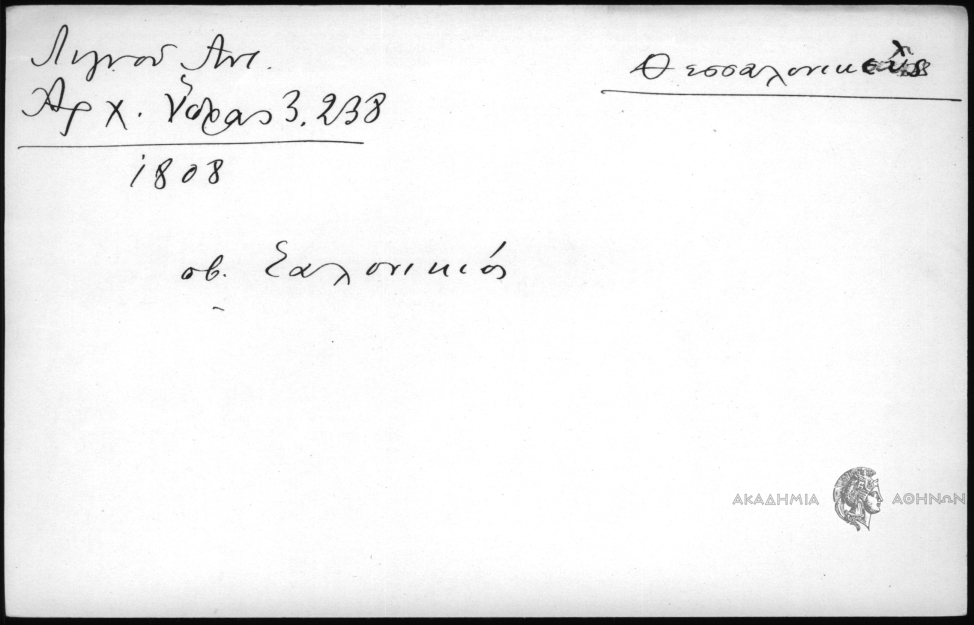 Λιγνού Αντ.
Θεσσαλονικεύς
Αρχ. Ύδρας 3.238
1808
σβ. Σαλονικιός
ΑΚΑΔΗΜΙΑ ΑΘΗΝΩΝ